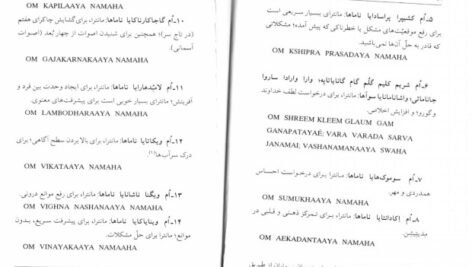 ۵ـ اُم کشیپرا پراسادایا ناماها: مانترا، بسیار سریعی است
برای رفع موقعیّت‌های مشکل یا خطرناکی که پیش آمده؛ مشکلاتی
که قادر به حلّ آن‌ها نمی‌باشید.
OM KSHIPRA PRASADAYA NAMAHA
۶ـ اُم شریم کلیم گلُم گام گاناپاتایه: وارا وارادا ساروا
جانامای؛ واشانامانایا سوآها: مانترا، برای درخواست لطف خداوند
و گورو؛ و افزایش اخلاص.
OM SHREEM KLEEM GLAUM GAM
GANAPATAYAE: VARA VARADA SARVA
JANAMAI; VASHANAMANAAYA SWAHA
۷ـ اُم سوموکهایا ناماها: مانترا، برای درخواست احساس
همدردی و مهر.
OM SUMUKHAAYA NAMAHA
۸ـ اُم اِکادانتایا ناماها: مانترا، برای تمرکز ذهنی و قلبی در
مِدیتِیشِن.
OM AEKADANTAAYA NAMAHA
OM KAPILAAYA NAMAHA
۱۰ـ اُم گاجاکارناکایا ناماها: مانترا، برای گشایش چاکرای هفتم
(در تاج سر)؛ همچنین برای شنیدن اصوات از چهار بُعد (اصوات
آسمانی).
OM GAJAKARNAKAAYA NAMAHA
۱۱ـ اُم لامبُدهارایا ناماها: مانترا، برای ایجاد وحدت بین فرد و
آفرینش؛ مانترای بسیار خوبی است برای پیشرفت‌های معنوی.
OM LAMBODHARAAYA NAMAHA
۱۲ـ اُم ویکاتایا ناماها: مانترا، برای بالا بردن سطح آگاهی؛ برای
درک سرآب‌ها.(۱)
OM VIKATAAYA NAMAHA
۱۳ـ اُم ویگنا ناشانایا ناماها: مانترا، برای رفع موانع درونی.
OM VIGHNA NASHANAAYA NAMAHA
۱۴ـ اُم ویناایاکایا ناماها: مانترا، برای پیشرفت سریع، بدون
موانع؛ مانترا برای حل مشکلات.
OM VINAYAKAAYA NAMAAHA